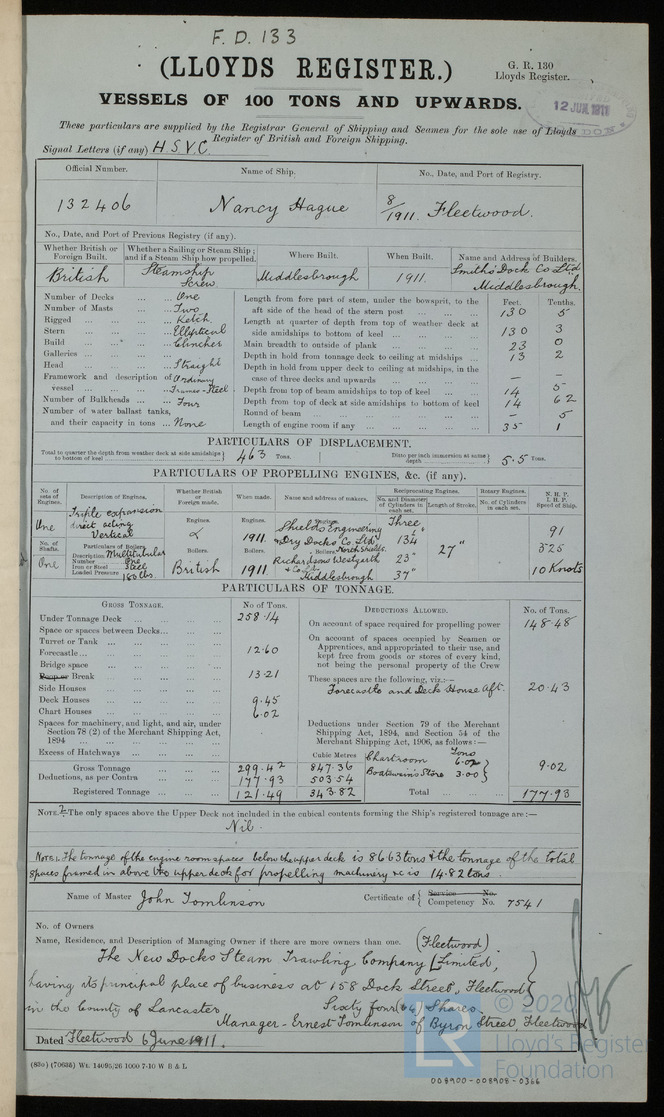 F. D. 133
(LLOYDS REGISTER.)
G. R. 130
Lloyds Register.
VESSELS OF 100 TONS AND UPWARDS.
12 JUN. 1911
These particulars are supplied by the Registrar General of Shipping and Seamen for the sole use of Lloyds
Register of British and Foreign Shipping.
Signal Letters (if any) H S V C
Official Number. Name of Ship. No., Date, and Port of Registry.
132406 Nancy Hague 8/1911. Fleetwood.
No., Date, and Port of Previous Registry (if any).
Whether British or Foreign Built. Whether a Sailing or Steam Ship; and if a Steam Ship how propelled. Where Built. When Built. Name and Address of Builders.
British Steamship Screw Middlesbrough 1911. Smiths Dock Co Ltd Middlesbrough.
Number of Decks ... One
Number of Masts ... Two
Rigged ... Ketch
Stern ... Elliptical
Build ... Clincher
Galleries ...
Head ... Straight
Framework and description of vessel ... Ordinary Frames - Steel
Number of Bulkheads ... Four
Number of water ballast tanks, and their capacity in tons ... None
Feet. Tenths.
Length from fore part of stem, under the bowsprit, to the aft side of the head of the stern post ... 130 5
Length at quarter of depth from top of weather deck at side amidships to bottom of keel ... 130 3
Main breadth to outside of plank ... 23 0
Depth in hold from tonnage deck to ceiling at midships ... 13 2
Depth in hold from upper deck to ceiling at midships, in the case of three decks and upwards ... – –
Depth from top of beam amidships to top of keel ... 14 5
Depth from top of deck at side amidships to bottom of keel 14 62
Round of beam ... – 5
Length of engine room if any ... 35 1
PARTICULARS OF DISPLACEMENT.
Total to quarter the depth from weather deck at side amidships to bottom of keel ... 463 Tons. Ditto per inch immersion at same depth ... 5.5 Tons.
PARTICULARS OF PROPELLING ENGINES, &c. (if any).
No. of sets of Engines. Description of Engines. Whether British or Foreign made. When made. Name and address of makers. Reciprocating Engines. No. and Diameter of Cylinders in each set. Length of Stroke. Rotary Engines. No. of Cylinders in each set. N. H. P. I. H. P. Speed of Ship.
One Triple expansion direct acting Vertical
Engines. Engines. 1911. Engines. Shields Engineering & Dry Docks Co. Ltd North Shields.
Three 13¾" 23" 37" 27" 91 525 10 Knots
No. of Shafts. One Particulars of Boilers. Description Multitubular Number One Iron or Steel Steel Loaded Pressure 180 lbs.
Boilers. British Boilers. 1911 Boilers. Richardsons Westgarth & Co Ltd Middlesbrough
PARTICULARS OF TONNAGE.
GROSS TONNAGE. No. of Tons.
Under Tonnage Deck ... 258.14
Space or spaces between Decks ...
Turret or Trunk ...
Forecastle ... 12.60
Bridge space ...
Poop or Break ... 13.21
Side Houses ...
Deck Houses ... 9.45
Chart Houses ... 6.02
Spaces for machinery, and light, and air, under Section 78 (2) of the Merchant Shipping Act, 1894 ...
Excess of Hatchways ...
Cubic Metres
Gross Tonnage ... 299.42 847.36
Deductions, as per Contra ... 177.93 503.54
Registered Tonnage ... 121.49 343.82
DEDUCTIONS ALLOWED. No. of Tons.
On account of space required for propelling power 148.48
On account of spaces occupied by Seamen or Apprentices, and appropriated to their use, and kept free from goods or stores of every kind, not being the personal property of the Crew
These spaces are the following, viz.:—
Forecastle and Deck House Aft. 20.43
Deductions under Section 79 of the Merchant Shipping Act, 1894, and Section 54 of the Merchant Shipping Act, 1906, as follows:—
Tons
Chartroom 6.02
Boatswain's Store 3.00 9.02
Total ... 177.93
NOTE 2.—The only spaces above the Upper Deck not included in the cubical contents forming the Ship's registered tonnage are:—
Nil.
NOTE 1. The tonnage of the engine room spaces below the upper deck is 86.63 tons & the tonnage of the total
spaces framed in above the upper deck for propelling machinery &c is 14.82 tons.
Name of Master John Tomlinson Certificate of Service No. Competency No. 7541
No. of Owners
Name, Residence, and Description of Managing Owner if there are more owners than one. (Fleetwood)
The New Docks Steam Trawling Company Limited,
having its principal place of business at 158 Dock Street, Fleetwood
in the County of Lancaster Sixty four (64) Shares.
Manager - Ernest Tomlinson of Byron Street, Fleetwood
Dated Fleetwood 6 June 1911.
© 2020
LR
Lloyd's Register
Foundation
008900-008908-0366